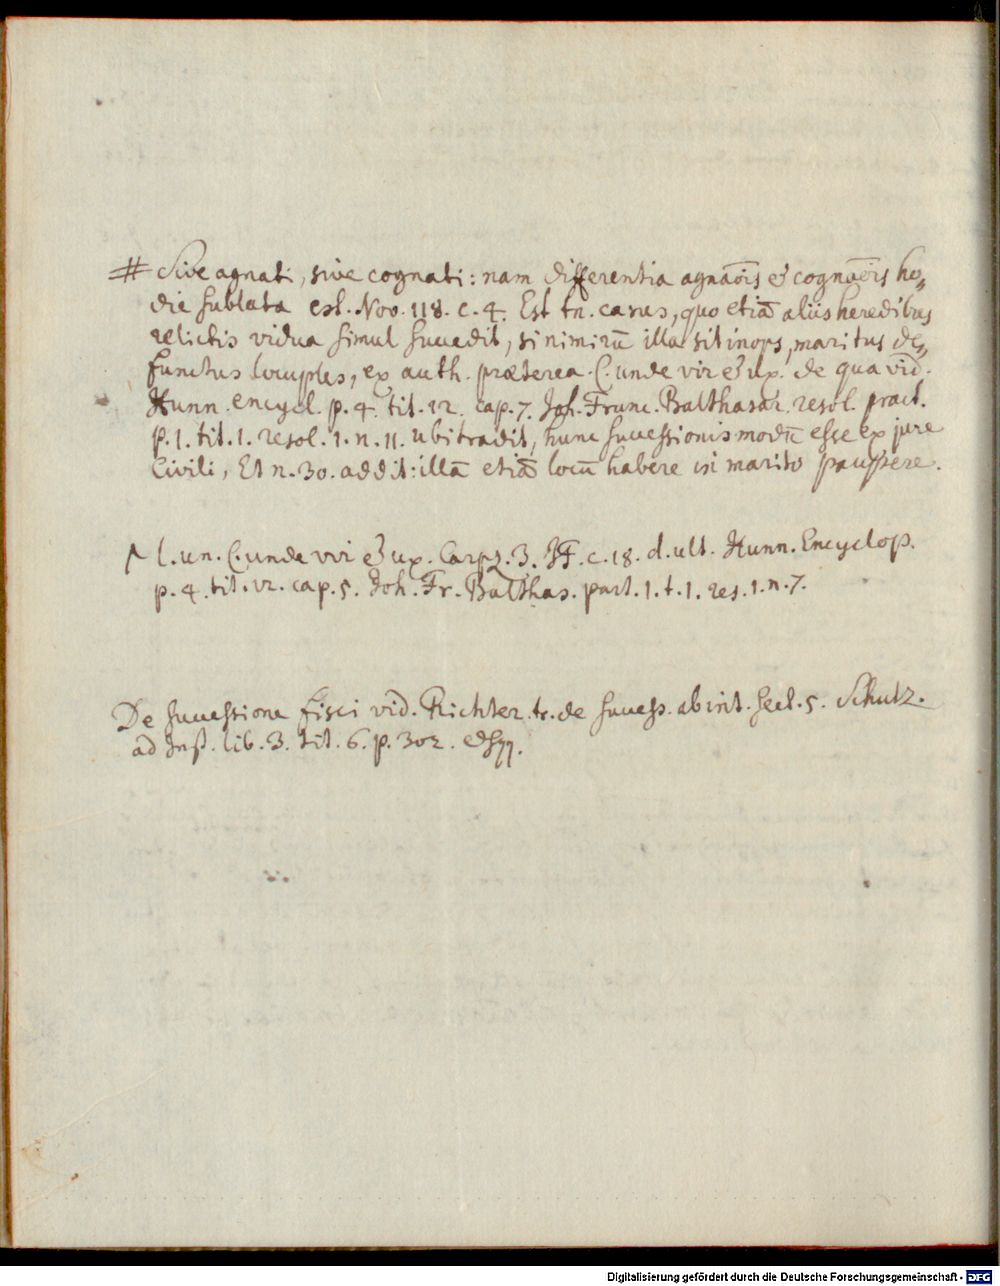 # Sive agnati, sive cognati: nam differentia agnaõis & cognaõis ho,,
die sublata est. Nov. 118. c. 4. Est tn. casus, quo etiã aliis heredibus
relictis vidua simul succedit, si nimirũ illa sit inops, maritus de,,
functus locuples, ex auth. præterea C. unde vir & ux. de qua vid.
Hunn. encycl. p. 4. tit. 12. cap. 7. Joh. Franc. Balthasar. resol. pract.
p. 1. tit. 1. resol. 1. n. 11. ubi tradit, hunc successionis modũ esse ex jure
Civili, Et n. 30. addit: illã etiã locũ habere in marito paupere.
l. un. C. unde vir & ux. Carpz. 3. JF. c. 18. d. ult. Hunn. Encyclop.
p. 4. tit. 12. cap. 5. Joh. Fr. Balthas. part. 1. t. 1. res. 1. n. 7.
De successione fisci vid. Richter. tr. de success. ab int. sect. 5. Schutz.
ad Inst. lib. 3. tit. 6. p. 302. &sqq.
Digitalisierung gefördert durch die Deutsche Forschungsgemeinschaft - DFG